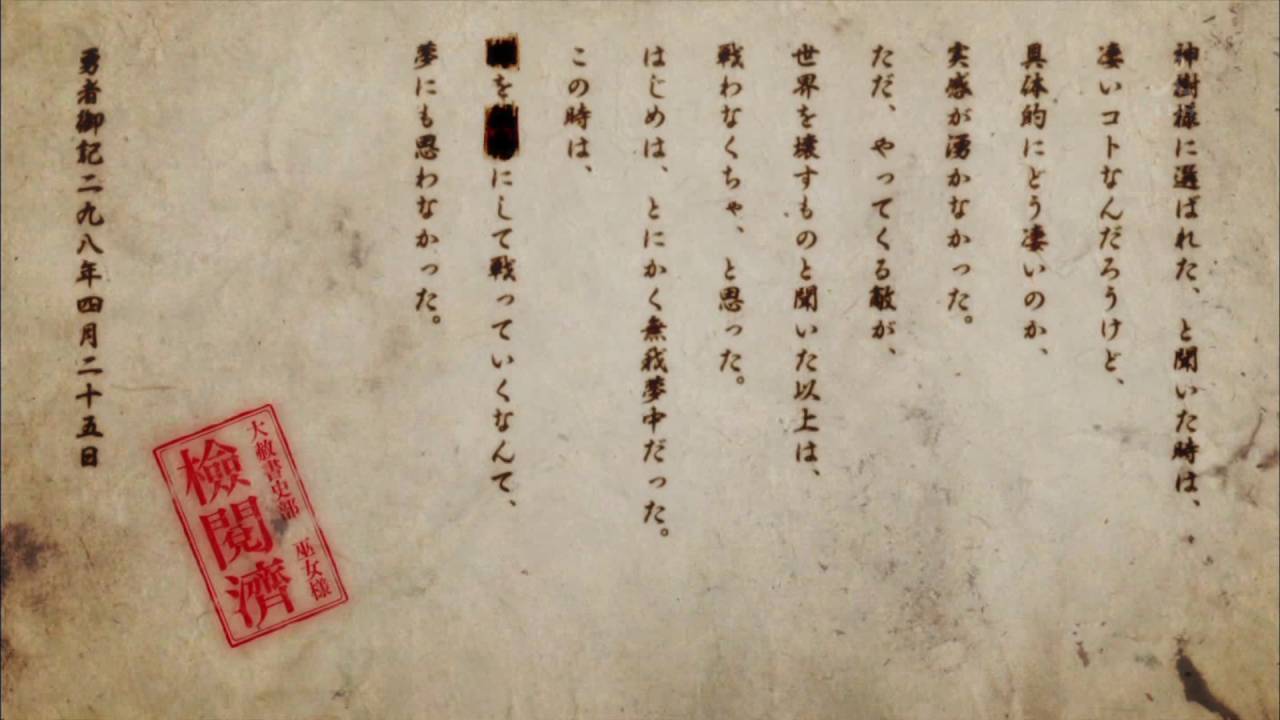 神樹様に選ばれた、と聞いた時は、
凄いコトなんだろうけど、
具体的にどう凄いのか、
実感が湧かなかった。
ただ、やってくる敵が、
世界を壊すものと聞いた以上は、
戦わなくちゃ、と思った。
はじめは、とにかく無我夢中だった。
この時は、
を
にして戦っていくなんて、
夢にも思わなかった。
勇者御記二九八年四月二十五日
大赦書史部 巫女様
檢閲濟